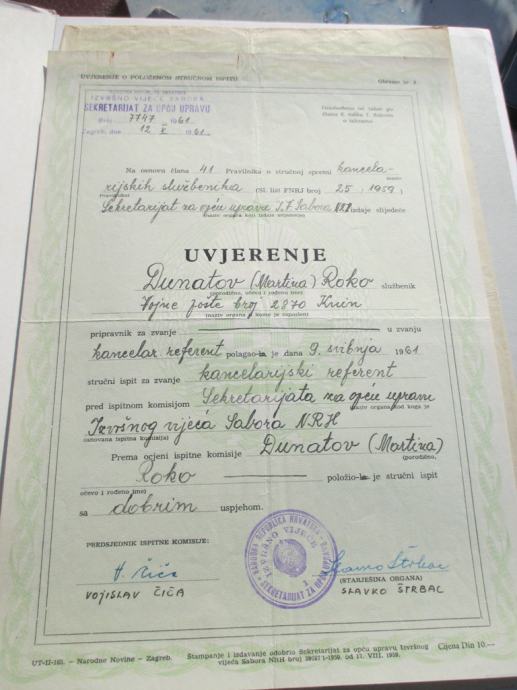 UVJERENJE O POLOŽENOM STRUČNOM ISPITU
Obrazac br. 3.
IZVRŠNO VIJEĆE SABORA
SEKRETARIJAT ZA OPĆU UPRAVU
Broj 7747 1961
Zagreb, dne 12 X 1961.
Na osnovu člana 41 Pravilnika o stručnoj spremi kancela-
rijskih službenika (Sl. list FNRJ broj 25/1959)
Sekretarijat za opću upravu I.V. Sabora NRH izdaje slijedeće
(naziv organa koji izdaje uvjerenje)
UVJERENJE
Dunatov (Martina) Roko službenik
(porodično, očevo i rođeno ime)
Vojne pošte broj 2870 Knin
(naziv organa u kome je zaposlen)
pripravnik za zvanje u zvanju
kancelar. referent polagao-la je dana 9. svibnja 1961
stručni ispit za zvanje kancelarijski referent
pred ispitnom komisijom Sekretarijata za opću upravu
(naziv organa kod koga je
Izvršnog vijeća Sabora NRH
osnovana ispitna komisija)
Prema ocjeni ispitne komisije Dunatov (Martina)
(porodično,
Roko položio-la je stručni ispit
očevo i rođeno ime)
sa dobrim uspjehom.
PREDSJEDNIK ISPITNE KOMISIJE:
V. Čiča
VOJISLAV ČIČA
NARODNA REPUBLIKA HRVATSKA
IZVRŠNO VIJEĆE
SEKRETARIJAT ZA OPĆU UPRAVU
Slavko Štrbac
(STARJEŠINA ORGANA)
SLAVKO ŠTRBAC
UT-II-163. — Narodne Novine — Zagreb.
Štampanje i izdavanje odobrio Sekretarijat za opću upravu Izvršnog
vijeća Sabora NRH broj 1-1959. od 17. VIII. 1959.
Cijena Din 10.—